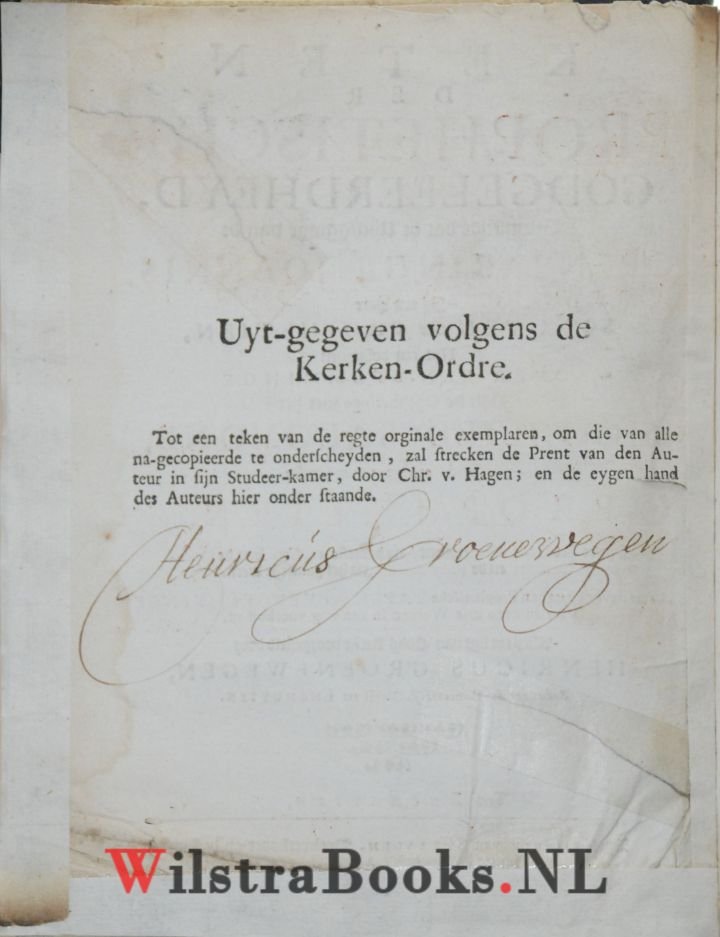 Uyt-gegeven volgens de
Kerken-Ordre.
Tot een teken van de regte orginale exemplaren, om die van alle
na-gecopieerde te onderscheyden, zal strecken de Prent van den Au-
teur in sijn Studeer-kamer, door Chr. v. Hagen; en de eygen hand
des Auteurs hier onder staande.
Henricus Groenewegen
WilstraBooks.NL